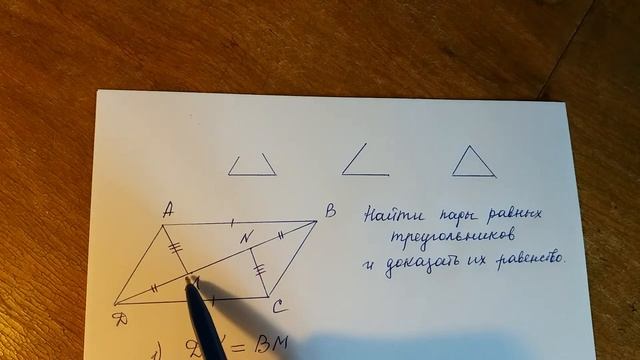 A
B
N
D
C
Найти пары равных
треугольников
и доказать их равенство.
1) = BM